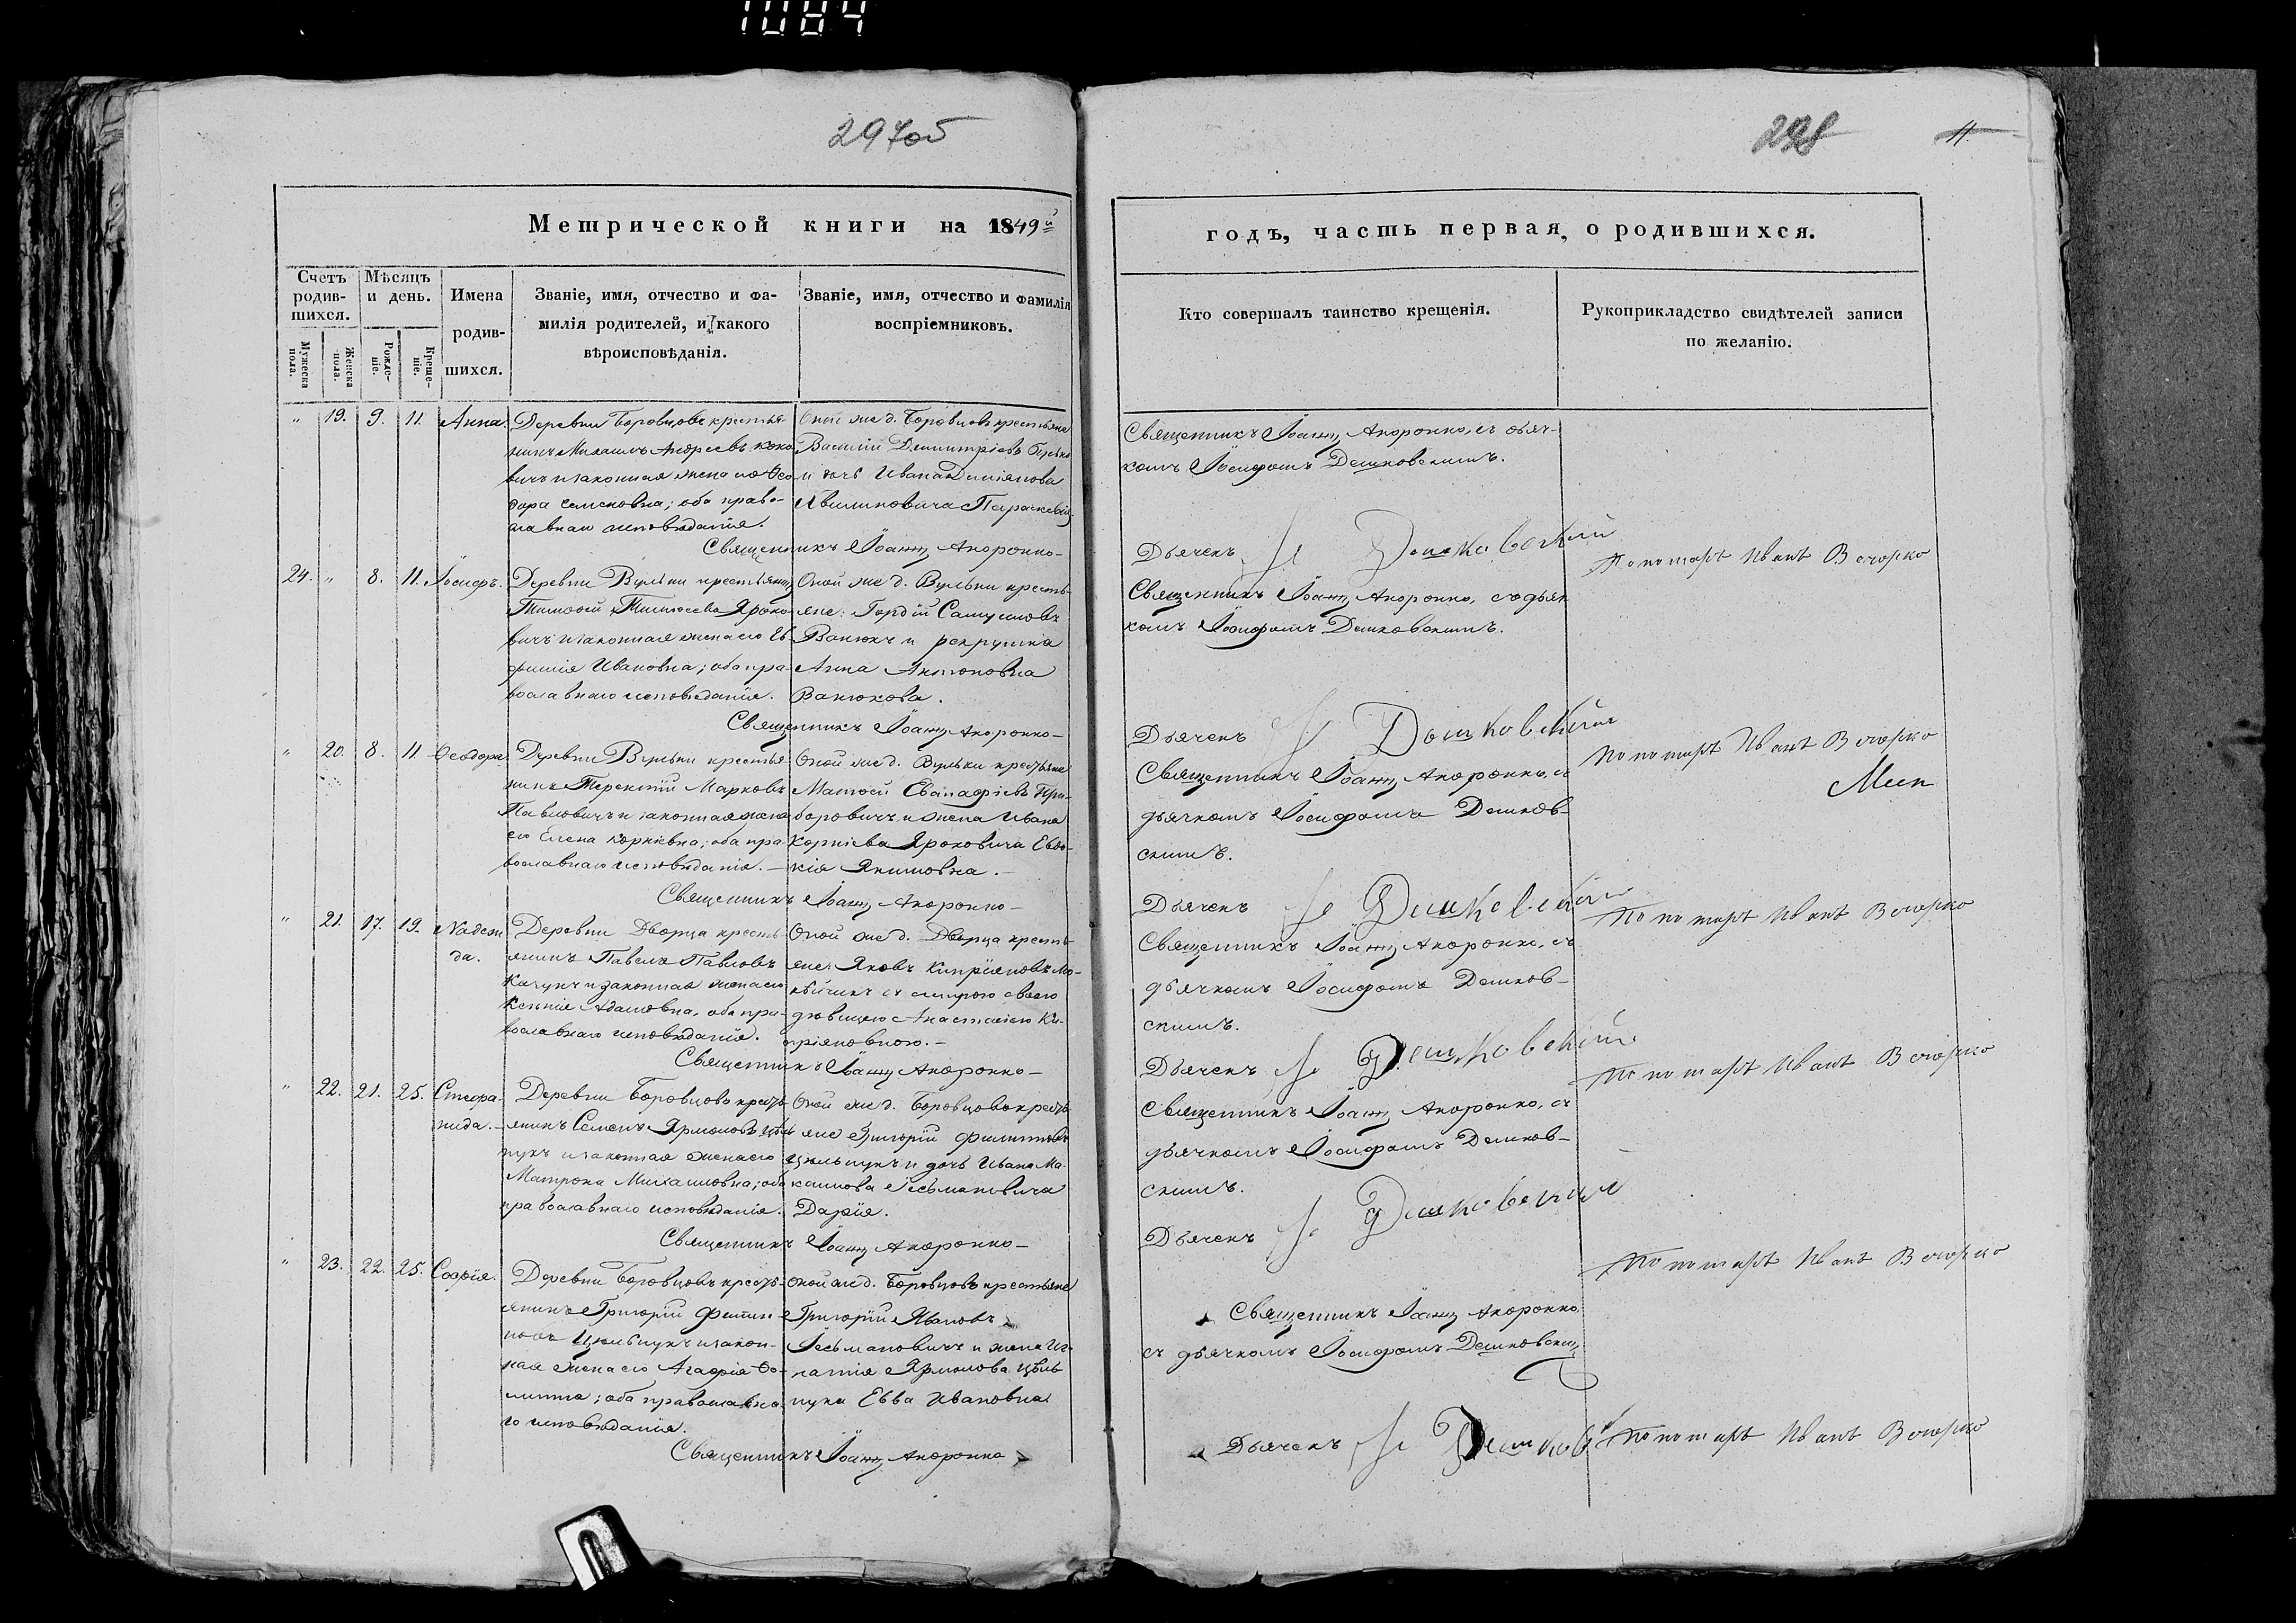 1084
297об
298
11.
Метрической книги на 1849й
годъ, часть первая, о родившихся.
Счетъ родив-шихся.
Мужеска пола.
Женска пола.
Мѣсяцъ и день.
Рожде-ніе.
Креще-ніе.
Имена родив-шихся.
Званіе, имя, отчество и фа-
милія родителей, и какого
вѣроисповѣданія.
Званіе, имя, отчество и фамилія
воспріемниковъ.
Кто совершалъ таинство крещенія.
Рукоприкладство свидѣтелей записи
по желанію.
" 19. 9. 11. Анна.
Деревни Боровцовъ крестья-
нинъ Михаилъ Андреевъ
вичъ и законная жена его Ѳео-
дора Семеновна; оба право-
славнаго исповѣданія.
Оной же д. Боровцовъ крестьяне
Василій Димитріевъ
и дочь Ивана Даміянова
Параскевія
Священникъ Іоаннъ Акоронко
Священникъ Іоаннъ Акоронко, съ дьяч-
комъ Іосифомъ Дешковскимъ.
Дьячекъ Дешковскій
Пономарь Иванъ Вечорко
24. " 8. 11. Іосифъ.
Деревни Вульки крестьянинъ
Тимоѳей Тимоѳеевъ Яроко-
вичъ и законная жена его Ев-
фимія Ивановна; оба пра-
вославнаго исповѣданія.
Оной же д. Вульки кресть-
яне: Гордій Самуиловъ
Ванюкъ и рекрутка
Анна Антоновна
Ванюкова.
Священникъ Іоаннъ Акоронко
Священникъ Іоаннъ Акоронко, съ дьяч-
комъ Іосифомъ Дешковскимъ.
Дьячекъ Дешковскій
Пономарь Иванъ Вечорко
" 20. 8. 11. Ѳеодора
Деревни Вульки крестья-
нинъ Терентій Марковъ
Павловичъ и законная жена
его Елена Корніевна; оба пра-
вославнаго исповѣданія.
Оной же д. Вульки крестьяне
Матѳей Евстафіевъ Гри-
горовичъ и жена Ивана
Корніева Яроковича Евдо-
кія Якимовна.
Священникъ Іоаннъ Акоронко
Священникъ Іоаннъ Акоронко, съ
дьячкомъ Іосифомъ Дешков-
скимъ.
Дьячекъ Дешковскій
Пономарь Иванъ Вечорко
" 21. 17. 19. Надеж-
да.
Деревни Дворца кресть-
янинъ Павелъ Павловъ
Качукъ и законная жена его
Ксенія Адамовна, оба пра-
вославнаго исповѣданія.
Оной же д. Дворца кресть-
яне: Яковъ Кипріяновъ Мо-
съ сестрою своею
дѣвицею Анастасіею Ки-
пріяновною.
Священникъ Іоаннъ Акоронко
Священникъ Іоаннъ Акоронко, съ
дьячкомъ Іосифомъ Дешков-
скимъ.
Дьячекъ Дешковскій
Пономарь Иванъ Вечорко
" 22. 21. 25. Стефа-
нида.
Деревни Боровцовъ кресть-
янинъ Семенъ Ярмоловъ Цюль-
пукъ и законная жена его
Матрона Михаиловна; оба
православнаго исповѣданія.
Оной же д. Боровцовъ кресть-
яне Григорій Филиповъ
Цюльпукъ и дочь Ивана Ма-
каимова Гесьмановича
Дарія.
Священникъ Іоаннъ Акоронко
Священникъ Іоаннъ Акоронко, съ
дьячкомъ Іосифомъ Дешков-
скимъ.
Дьячекъ Дешковскій
Пономарь Иванъ Вечорко
" 23. 22. 25. Софія.
Деревни Боровцовъ кресть-
янинъ Григорій Филип-
повъ Цюльпукъ и закон-
ная жена его Агафія Ѳо-
мина; оба православна-
го исповѣданія.
Оной же д. Боровцовъ крестьяне
Григорій Ивановъ
Гесьмановичъ и жена Иг-
натія Ярмолова Цюль-
пука Евва Ивановна
Священникъ Іоаннъ Акоронко
Священникъ Іоаннъ Акоронко,
съ дьячкомъ Іосифомъ Дешковским
Дьячекъ Дешков
Пономарь Иванъ Вечорко